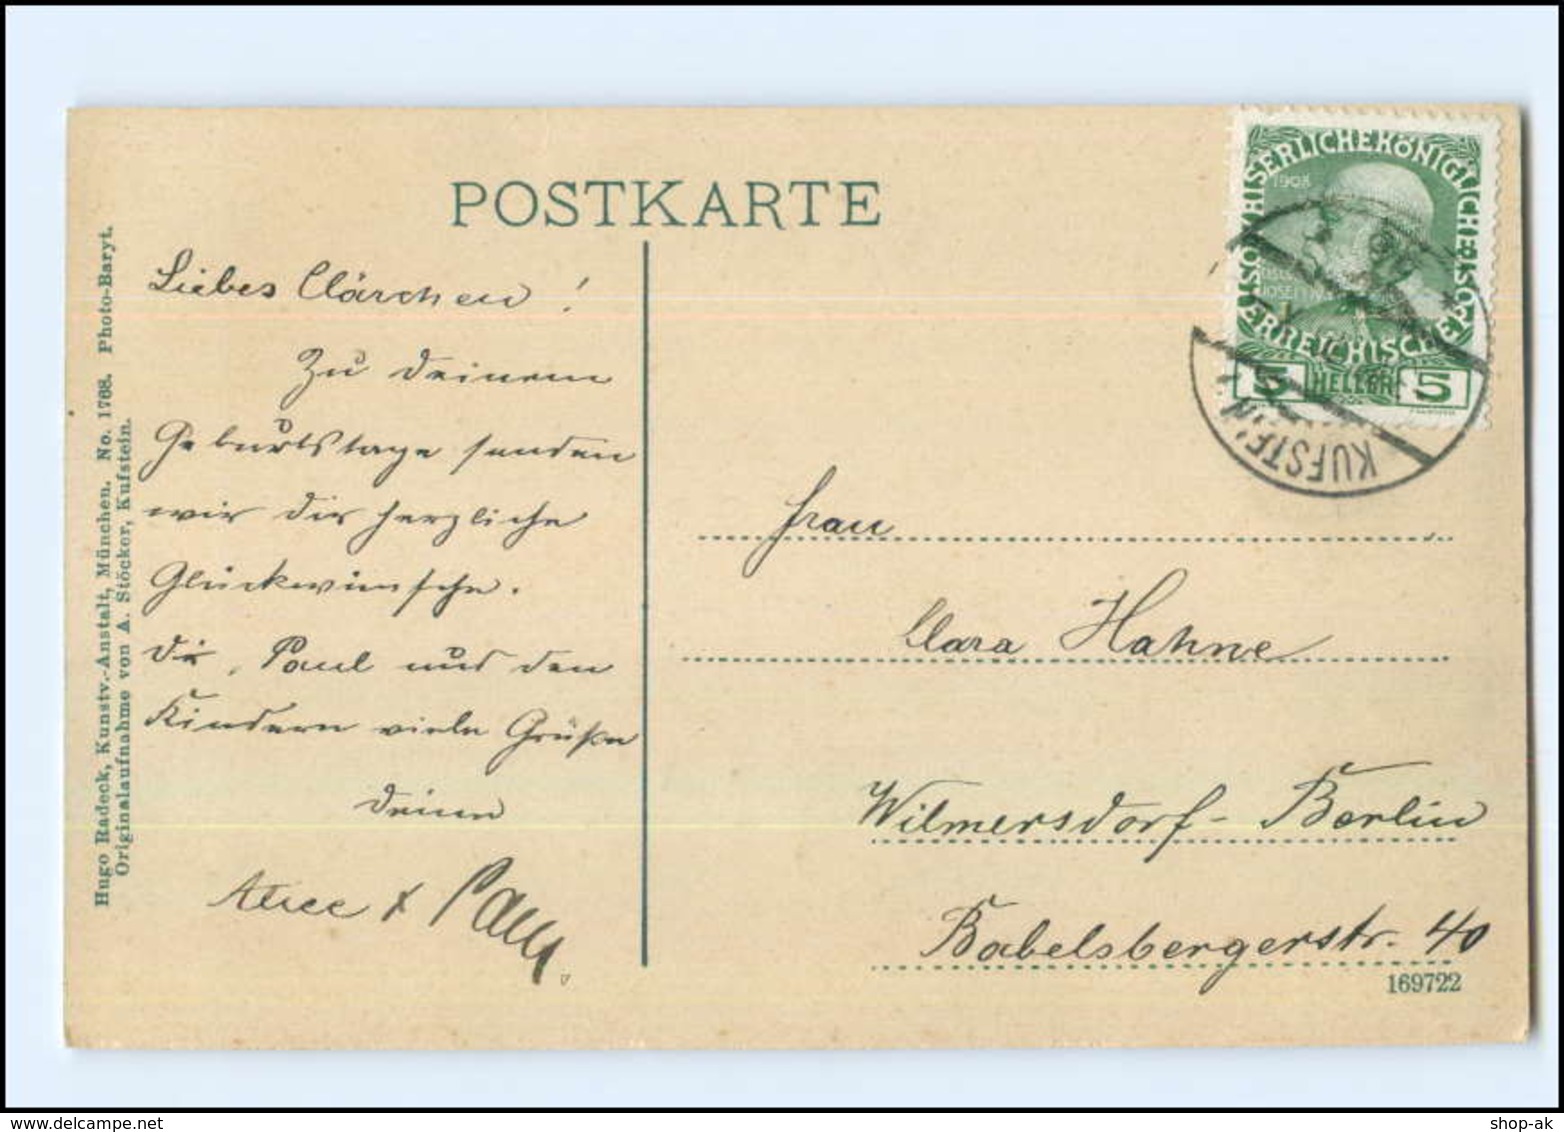 POSTKARTE
Liebes Clärchen!
Zu deinem
Geburtstage senden
wir dir herzliche
Glückwünsche.
Dir, Paul und den
Kindern viele Grüße
deine
Alice & Paul.
Hugo Radeck, Kunstv.-Anstalt, München. No. 1768. Photo-Baryt.
Originalaufnahme von A. Stöcker, Kufstein.
KAISERLICHE KÖNIGLICHE ÖSTERREICHISCHE POST
1908
5 HELLER 5
KUFSTEIN
Frau
Clara Hahne
Wilmersdorf-Berlin
Babelsbergerstr. 40
169722
shop-ak